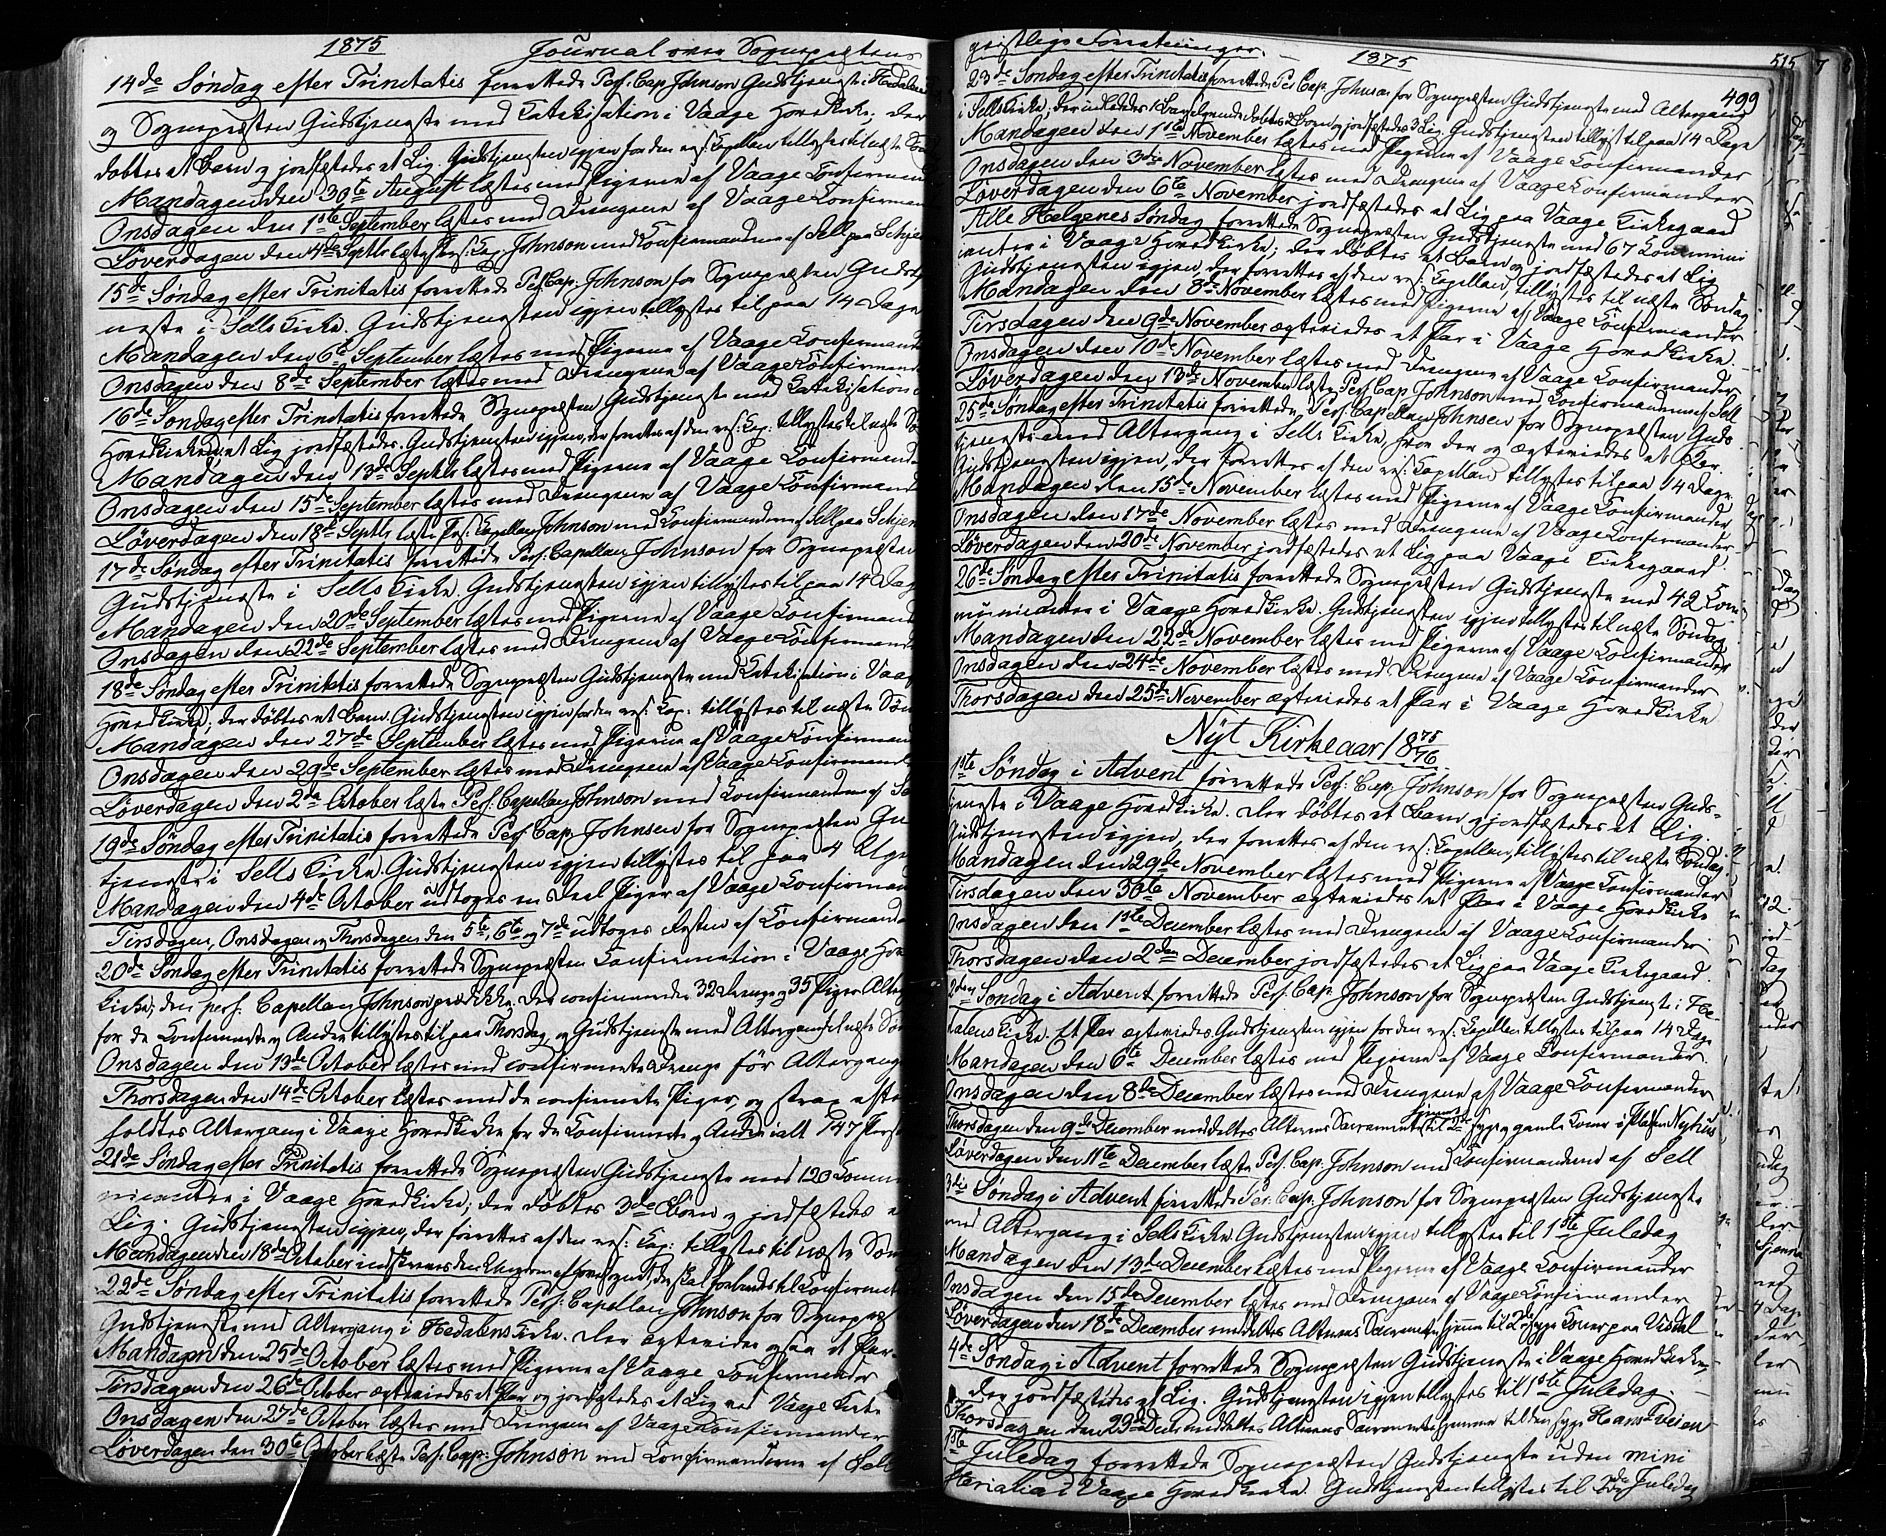 1875 Journal over Sognepræstens
14de Søndag efter Trinitatis forrettede Pers. Cap. Johnson Gudstjeneste i Hedalens
og Sognepræsten Gudstjeneste med Catekisation i Vaage Hovedkirke; der
døbtes et Barn og jordfæstedes et Lig. Gudstjenesten igjen for den res. Capellan tillystes til næste Sønd
Mandagen den 30te August læstes med Pigerne af Vaage Confirmand
Onsdagen den 1ste September læstes med Drengene af Vaage Confirman
Løverdagen den 4de Septbr læste Pers. Cap. Johnson med Confirmanderne af Sell paa
15de Søndag efter Trinitatis forrettede Pers. Cap. Johnson for Sognepræsten Gudstj
neste i Sells Kirke. Gudstjenesten igjen tillystes til paa 14 Dage
Mandagen den 6te September læstes med Pigerne af Vaage Confirmande
Onsdagen den 8de September læstes med Drengene af Vaage Confirmand
16de Søndag efter Trinitatis forrettede Sognepræsten Gudstjeneste med Catekisation
Hovedkirke; et Lig jordfæstedes. Gudstjenesten igjen, der forrettes af den res. Cap. tillystes til næste Sø
Mandagen den 13de Septbr læstes med Pigerne af Vaage Confirmand
Onsdagen den 15de September læstes med Drengene af Vaage Confirmand
Løverdagen den 18de Septbr læste Pers. Capellan Johnson med Confirmanderne af Sell paa
17de Søndag efter Trinitatis forrettede Pers. Capellan Johnson for Sognepræsten
Gudstjeneste i Sells Kirke. Gudstjenesten igjen tillystes til paa 14 Dag
Mandagen den 20de September læstes med Pigerne af Vaage Confirmand
Onsdagen den 22de September læstes med Drengene af Vaage Confirmand
18de Søndag efter Trinitatis forrettede Sognepræsten Gudstjeneste med Catekisation i Vaag
Hovedkirke; der døbtes et Barn. Gudstjenesten igjen for den res. Cap. tillystes til næste Søn
Mandagen den 27de September læstes med Pigerne af Vaage Confirmand
Onsdagen den 29de September læstes med Drengene af Vaage Confirmand
Løverdagen den 2den October læste Pers. Capellan Johnson med Confirmanderne af Se
19de Søndag efter Trinitatis forrettede Pers. Cap. Johnsen for Sognepræsten Gu
tjeneste i Sells Kirke. Gudstjenesten igjen tillystes til paa 4 Uger
Mandagen den 4de October udtoges en Deel Piger af Vaage Confirman
Tirsdagen, Onsdagen og Thorsdagen den 5te, 6te og 7de udtoges Resten af Confirmande
20de Søndag efter Trinitatis forrettede Sognepræsten Confirmation i Vaage Hov
kirke; den pers. Capellan Johnson prædikede. Der confirmeredes 32 Drenge og 35 Piger. Alterg
for de Confirmerte og Andre tillystes til paa Thorsdag, og Gudstjeneste med Altergang til næste Søn
Onsdagen den 13de October læstes med confirmerte Drenge før Altergang
Thorsdagen den 14de October læstes med de confirmerte Piger, og strax efter
holdtes Altergang i Vaage Hovedkirke for de Confirmerte og Andre ialt 147 Pers
21de Søndag efter Trinitatis forrettede Sognepræsten Gudstjeneste med 120 Commu
nicantere i Vaage Hovedkirke; der døbtes 3de Børn og jordfæstedes et
Lig. Gudstjenesten igjen, der forrettes af den res. Cap. tillystes til næste Søn
Mandagen den 18de October indskreves den Ungdom af Hovedsognet, der skal forberedes til Confirmat
22de Søndag efter Trinitatis forrettede Pers. Capellan Johnson for Sognepræst
Gudstjeneste med Altergang i Hedalens Kirke. Der ægteviedes ogsaa et Par.
Mandagen den 25de October læstes med Pigerne af Vaage Confirmander
Tirsdagen den 26de October ægteviedes et Par og jordfæstedes et Lig ved Vaage Kirke
Onsdagen den 27de October læstes med Drengene af Vaage Confirmander
Løverdagen den 30te October læste Pers. Cap. Johnson med Confirmanderne af Sell
geistlige Forretninger. 1875
499
515
23de Søndag efter Trinitatis forrettede Pers. Cap. Johnson for Sognepræsten Gudstjeneste med Altergang
i Sells Kirke; der indlededes 1 Barselqvinde, døbtes 2 Børn og jordfæstedes 3 Lig. Gudstjenesten tillyst til paa 14 Dage
Mandagen den 1ste November læstes med Pigerne af Vaage Confirmander
Onsdagen den 3die November læstes med Drengene af Vaage Confirmander
Løverdagen den 6te November jordfæstedes et Lig paa Vaage Kirkegaard
Alle Helgenes Søndag forrettede Sognepræsten Gudstjeneste med 67 Communi
canter i Vaage Hovedkirke; der døbtes et Barn og jordfæstedes et Lig
Gudstjenesten igjen, der forrettes af den res. Capellan, tillystes til næste Søndag
Mandagen den 8de November læstes med Pigerne af Vaage Confirmander
Tirsdagen den 9de November ægteviedes et Par i Vaage Hovedkirke.
Onsdagen den 10de November læstes med Drengene af Vaage Confirmander
Løverdagen den 13de November læste Pers. Cap. Johnson med Confirmanderne af Sell
25de Søndag efter Trinitatis forrettede Pers. Capellan Johnsen for Sognepræsten Guds
tjeneste med Altergang i Sells Kirke, hvor der og ægteviedes et Par.
Gudstjenesten igjen, der forrettes af den res. Capellan tillystes til paa 14 Dage
Mandagen den 15de November læstes med Pigerne af Vaage Confirmander
Onsdagen den 17de November læstes med Drengene af Vaage Confirmander
Løverdagen den 20de November jordfæstedes et Lig paa Vaage Kirkegaard.
26de Søndag efter Trinitatis forrettede Sognepræsten Gudstjeneste med 42 Com
municanter i Vaage Hovedkirke. Gudstjenesten igjen tillystes til næste Søndag
Mandagen den 22de November læstes med Pigerne af Vaage Confirmander
Onsdagen den 24de November læstes med Drengene af Vaage Confirmander
Thorsdagen den 25de November ægteviedes et Par i Vaage Hovedkirke
Nyt Kirkeaar 1875/76.
1ste Søndag i Advent forrettede Pers. Cap. Johnson for Sognepræsten Guds-
tjeneste i Vaage Hovedkirke. Der døbtes et Barn og jordfæstedes et Lig.
Gudstjenesten igjen, der forrettes af den res. Capellan, tillystes til næste Søndag.
Mandagen den 29de November læstes med Pigerne af Vaage Confirmander
Tirsdagen den 30te November ægteviedes et Par i Vaage Hovedkirke
Onsdagen den 1ste December læstes med Drengene af Vaage Confirmander
Thorsdagen den 2den December jordfæstedes et Lig paa Vaage Kirkegaard.
2den Søndag i Advent forrettede Pers. Cap. Johnson for Sognepræsten Gudstjenest i He-
dalens Kirke. Et Par ægteviedes. Gudstjenesten igjen for den res. Capellan tillystes til paa 14 Dage
Mandagen den 6te December læstes med Pigerne af Vaage Confirmander.
Onsdagen den 8de December læstes med Drengene af Vaage Confirmander
Thorsdagen den 9de December meddeltes Alterens Sacramente hjemme til 2de syge og gamle Koner i Pladsen Nyhus
Løverdagen den 11te December læste Pers. Cap. Johnson med Confirmanderne af Sell
3die Søndag i Advent forrettede Pers. Cap. Johnson for Sognepræsten Gudstjeneste
med Altergang i Sells Kirke. Gudstjenesten igjen tillystes til 1ste Juledag
Mandagen den 13de December læstes med Pigerne af Vaage Confirmander
Onsdagen den 15de December læstes med Drengene af Vaage Confirmander
Løverdagen den 18de December meddeltes Alterens Sacramente hjemme til 2de syge Koner paa
4de Søndag i Advent forrettede Sognepræsten Gudstjeneste i Vaage Hovedkirke;
Der jordfæstedes et Lig. Gudstjenesten igjen tillystes til 1ste Juledag.
Thorsdagen den 23de Decbr meddeltes Alterens Sacramente hjemme til den syge Hans Tveien
1ste Juledag forrettede Sognepræsten Gudstjeneste uden mini
sterialia i Vaage Hovedkirke. Gudstjenesten tillystes til 2den Juledag